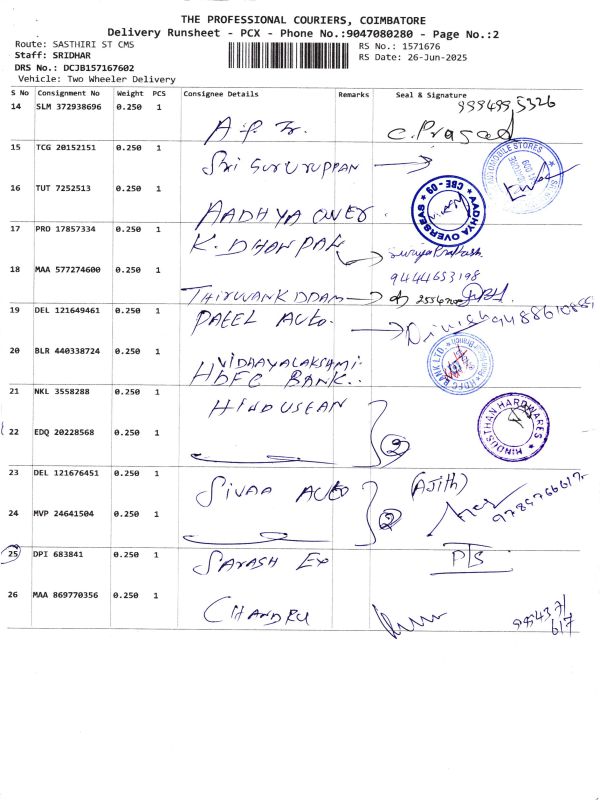 THE PROFESSIONAL COURIERS, COIMBATORE
Delivery Runsheet - PCX - Phone No.:9047080280 - Page No.:2
Route: SASTHIRI ST CMS
Staff: SRIDHAR
DRS No.: DCJB157167602
Vehicle: Two Wheeler Delivery
RS No.: 1571676
RS Date: 26-Jun-2025
S No Consignment No Weight PCS Consignee Details Remarks Seal & Signature
14 SLM 372938696 0.250 1 A.P. Tr. C. Prasad
15 TCG 20152151 0.250 1 Shri Gururuppan
16 TUT 7252513 0.250 1 AADHYA OVER. AADHYA OVERSEAS CBE - 09
17 PRO 17857334 0.250 1 K. DHANPAL Surya Prakash
9444653198
18 MAA 577274600 0.250 1 THIRUVANKIDDAM
19 DEL 121649461 0.250 1 PATEL AUTO.
20 BLR 440338724 0.250 1 VIDAAYALAKSAMI.
HDFC BANK.. HDFC BANK LTD.
21 NKL 3558288 0.250 1 HINDUSEAN HINDUSTHAN HARDWARES
22 EDQ 20228568 0.250 1 2
23 DEL 121676451 0.250 1 SIVAA AUTO (AJith)
24 MVP 24641504 0.250 1 2
25 DPI 683841 0.250 1 SARASH EX P/S
26 MAA 869770356 0.250 1 CHANDRU